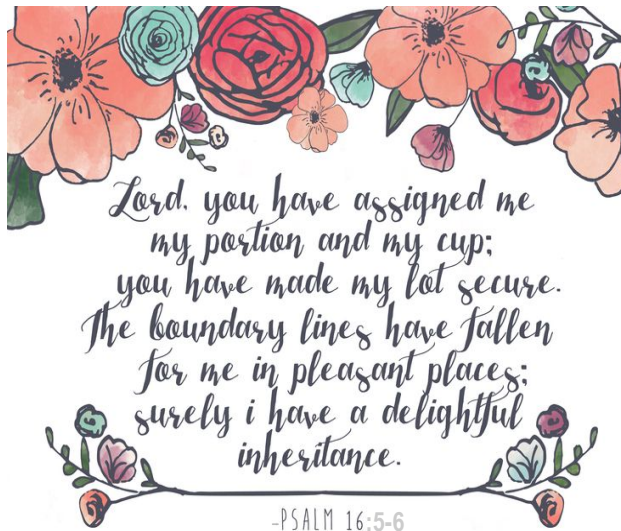 Lord, you have assigned me
my portion and my cup;
you have made my lot secure.
The boundary lines have fallen
for me in pleasant places;
surely i have a delightful
inheritance.
-PSALM 16:5-6